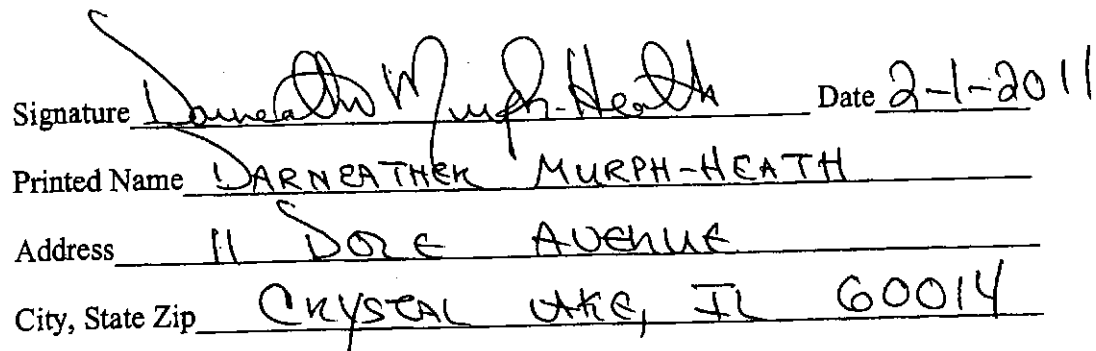 Signature Darneather Murph-Heath Date 2-1-2011
Printed Name DARNEATHER MURPH-HEATH
Address 11 DOLE AVENUE
City, State Zip CRYSTAL LAKE, IL 60014